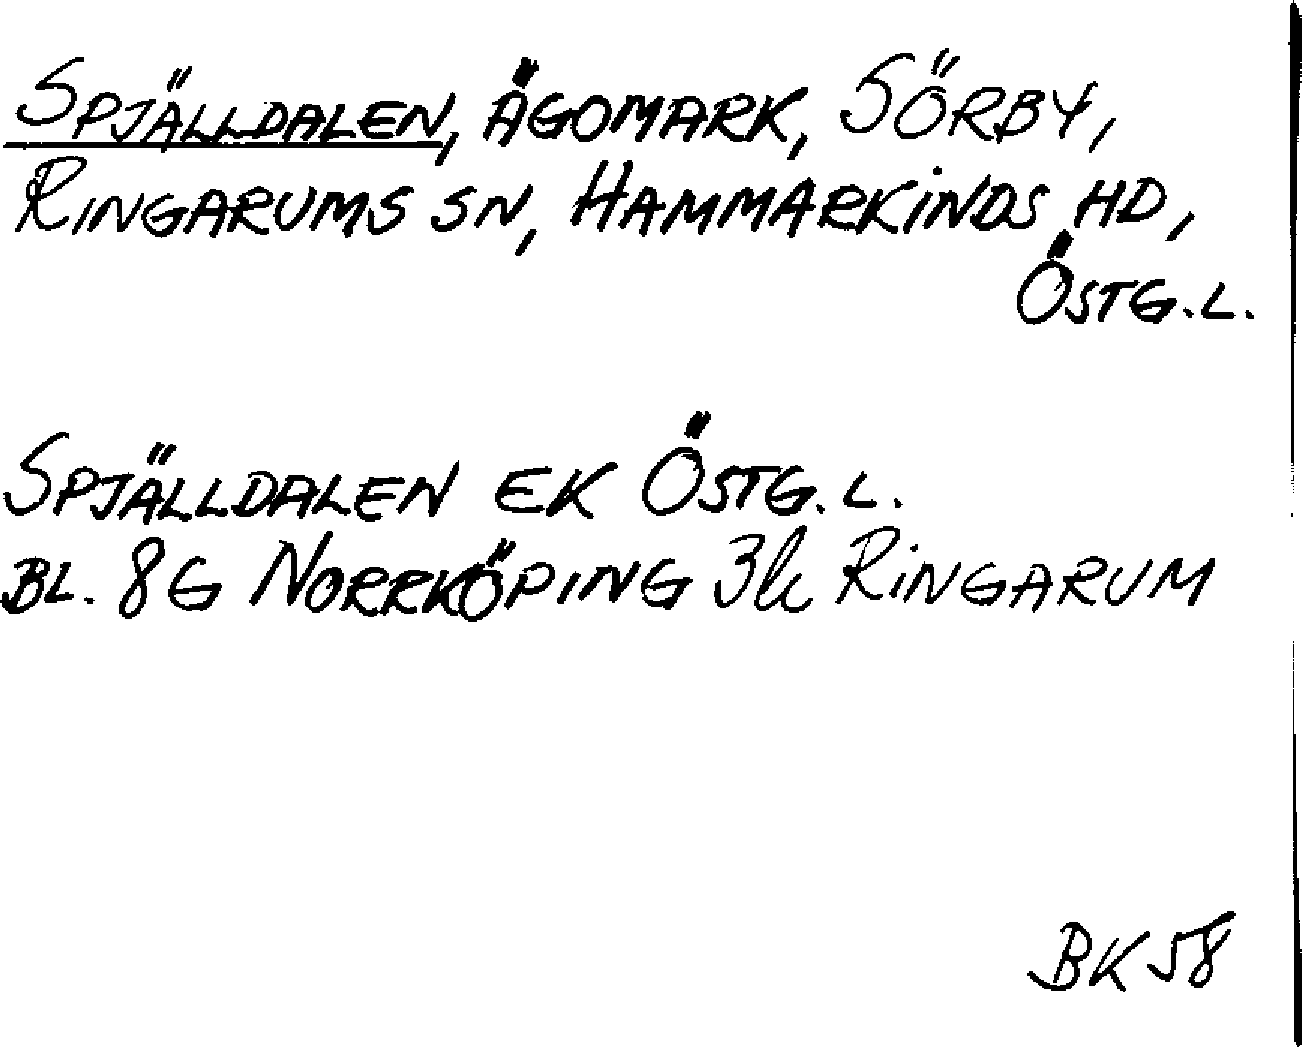 SPJÄLLDALEN, ÄGOMARK, SÖRBY,
RINGARUMS SN, HAMMARKINDS HD,
ÖSTG.L.
SPJÄLLDALEN EK ÖSTG.L.
BL. 8G NORRKÖPING 3h RINGARUM
BK 58